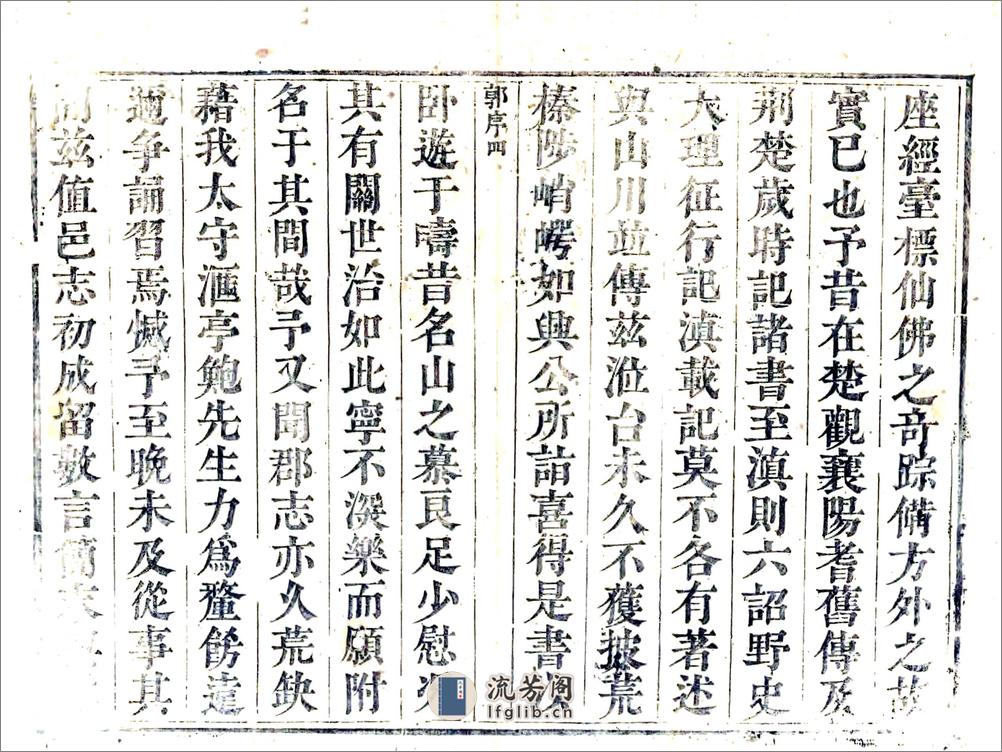 座經臺標仙佛之竒踪備方外之故
實已也予昔在楚觀襄陽耆舊傳及
荆楚歲時記諸書至滇則六詔野史
大理征行記滇載記莫不各有著述
與山川並傳茲涖台未久不獲披荒
榛陟峭崿如興公所詣喜得是書以
郭序四
卧遊于疇昔名山之慕良足少慰
其有關世治如此寧不深樂而願附
名于其間哉予又聞郡志亦久荒缺
藉我太守洍亭鮑先生力為釐飭遠
邇争誦習焉憾予至晚未及從事其
間茲值邑志初成畱數言簡末
流芳阁
lfglib.cn